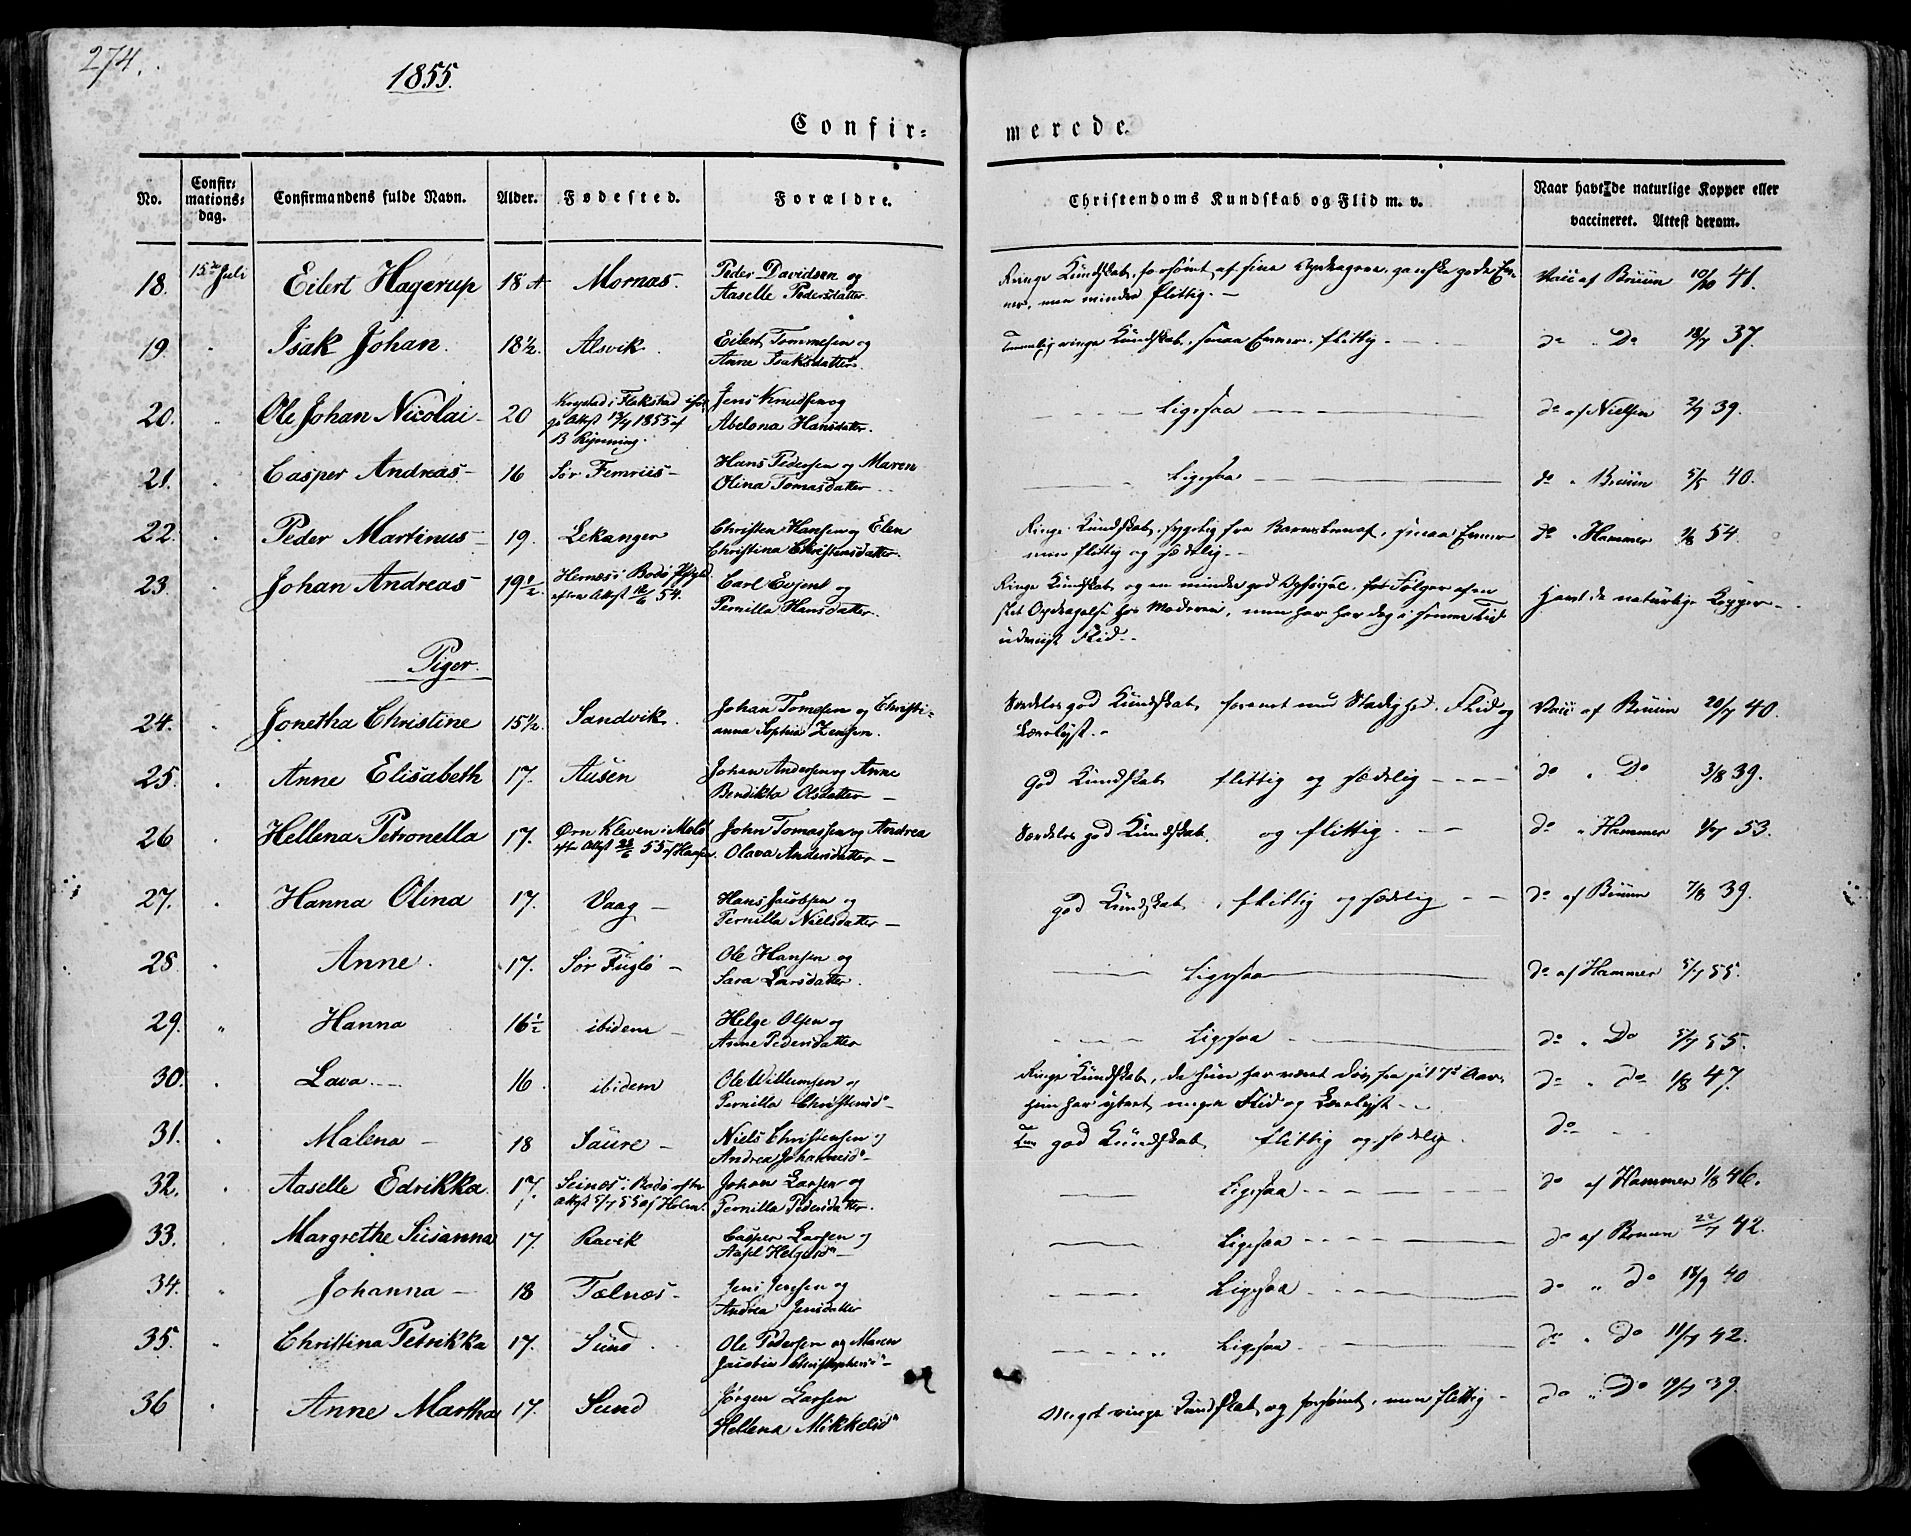 274.
1855.
Confir= merede.
No. Confir= mations= dag. Confirmandens fulde Navn. Alder. Fødested. Forældre. Christendoms Kundskab og Flid m. v. Naar havt de naturlige Kopper eller vaccineret. Attest derom.
18. 15de Juli Eilert Hagerup 18 Mornæs. Peder Davidsen og Aaselle Pedersdatter. Ringe Kundskab, forsømt af sine gandske gode Ev- ner, men mindre flittig. — Vacc af Bruun 10/10 41.
19. " Isak Johan. 18½. Alsvik. Eilert Tommesen og Anne Isaksdatter. Temmelig ringe Kundskab, smaa Evner, flittig. — do " Do 18/7 37.
20. " Ole Johan Nicolai — 20 i Flakstad Attest 13/4 1855 af B Rynning. Jens Knudsen og Abelona Hansdatter. — Ligesaa — do af Nielsen 2/7 39.
21. " Casper Andreas — 16 Sør Femriis — Hans Pedersen og Maren Olina Tomasdatter. — Ligesaa — do " Bruun 5/5 40.
22. " Peder Martinus — 19. Lekanger Christen Hansen og Elen Christina Christensdatter. Ringe Kundskab, sygelig fra Barnsbeenaf, smaa Evner men flittig og sædelig. — do " Hammer 1/8 54.
23. " Johan Andreas — 19½. Hernæs i Bodø efter Attest 12/6 54. Carl Evjent og Pernilla Hansdatter. Ringe Kundskab og en mindre god Opførsel, Følger af en slet Opdragelse hos Moderen, men har dog i senere Tid udviist Flid. — Havt de naturlige Kopper —
Piger.
24. " Jonetha Christine 15½. Sandvik. Johan Tomesen og Christi= anna Sophia Jensen. Særdeles god Kundskab forenet med Stadighed, Flid og Lærelyst. — Vacc af Bruun 20/7 40.
25. " Anne Elisabeth 17. Ausen Johan Andersen og Anne Bendikta Olsdatter — God Kundskab flittig og sædelig — do " Do 3/8 39.
26 Hellena Petronella 17. Ørn Kleven i Melø efter Attest 23/6 55 af Hansen. John Tomassen og Andrea Olava Andersdatter — Særdeles god Kundskab og flittig. — do " Hammer 1/7 53.
27. " Hanna Olina 17. Vaag — Hans Jacobsen og Pernilla Nielsdatter — god Kundskab, flittig og sædelig — do af Bruun 7/8 39.
28 " Anne. 17. Sør Fuglø — Ole Hansen og Sara Larsdatter. — Ligesaa — do af Hammer 5/7 55.
29. " Hanna 16½ ibidem — Helge Olsen og Anne Pedersdatter — Ligesaa — do " Do 5/7 55.
30. " Lava. — 16. ibidem Ole Willumsen og Pernilla Christensdr — Ringe Kundskab, da hun har været døv fra sit 7de Aar, hun har yttret megen Flid og Lærelyst — do " do 1/8 47.
31. " Malena — 18 Saure — Niels Christensen og Andrea Johannesdr — god Kundskab flittig og sædelig. do —
32. " Aaselle Edrikka. 17. Seines i Bodø efter Attest 5/7 55 af Holm. Johan Larsen og Pernilla Pedersdatter. — Ligesaa — do af Hammer 1/8 46.
33. " Margrethe Susanna 17. Ravik Casper Larsen og Aasel Helgesdr — Ligesaa — do af Bruun 22/7 42.
34. " Johanna — 18 Tælnæs — Jens Jensen og Andrea Jensdatter — Ligesaa — do " do 18/9 40
35. " Christina Petrikka 17. Sund Ole Pedersen og Maren Jacobia Christophersdr — Ligesaa — do " Do 11/7 42.
36 " Anne Martha 17. Sund Jørgen Larsen Hellena Mikkelsdr Meget ringe Kundskab og forsømt, men flittig — do " Do 19/7 39.